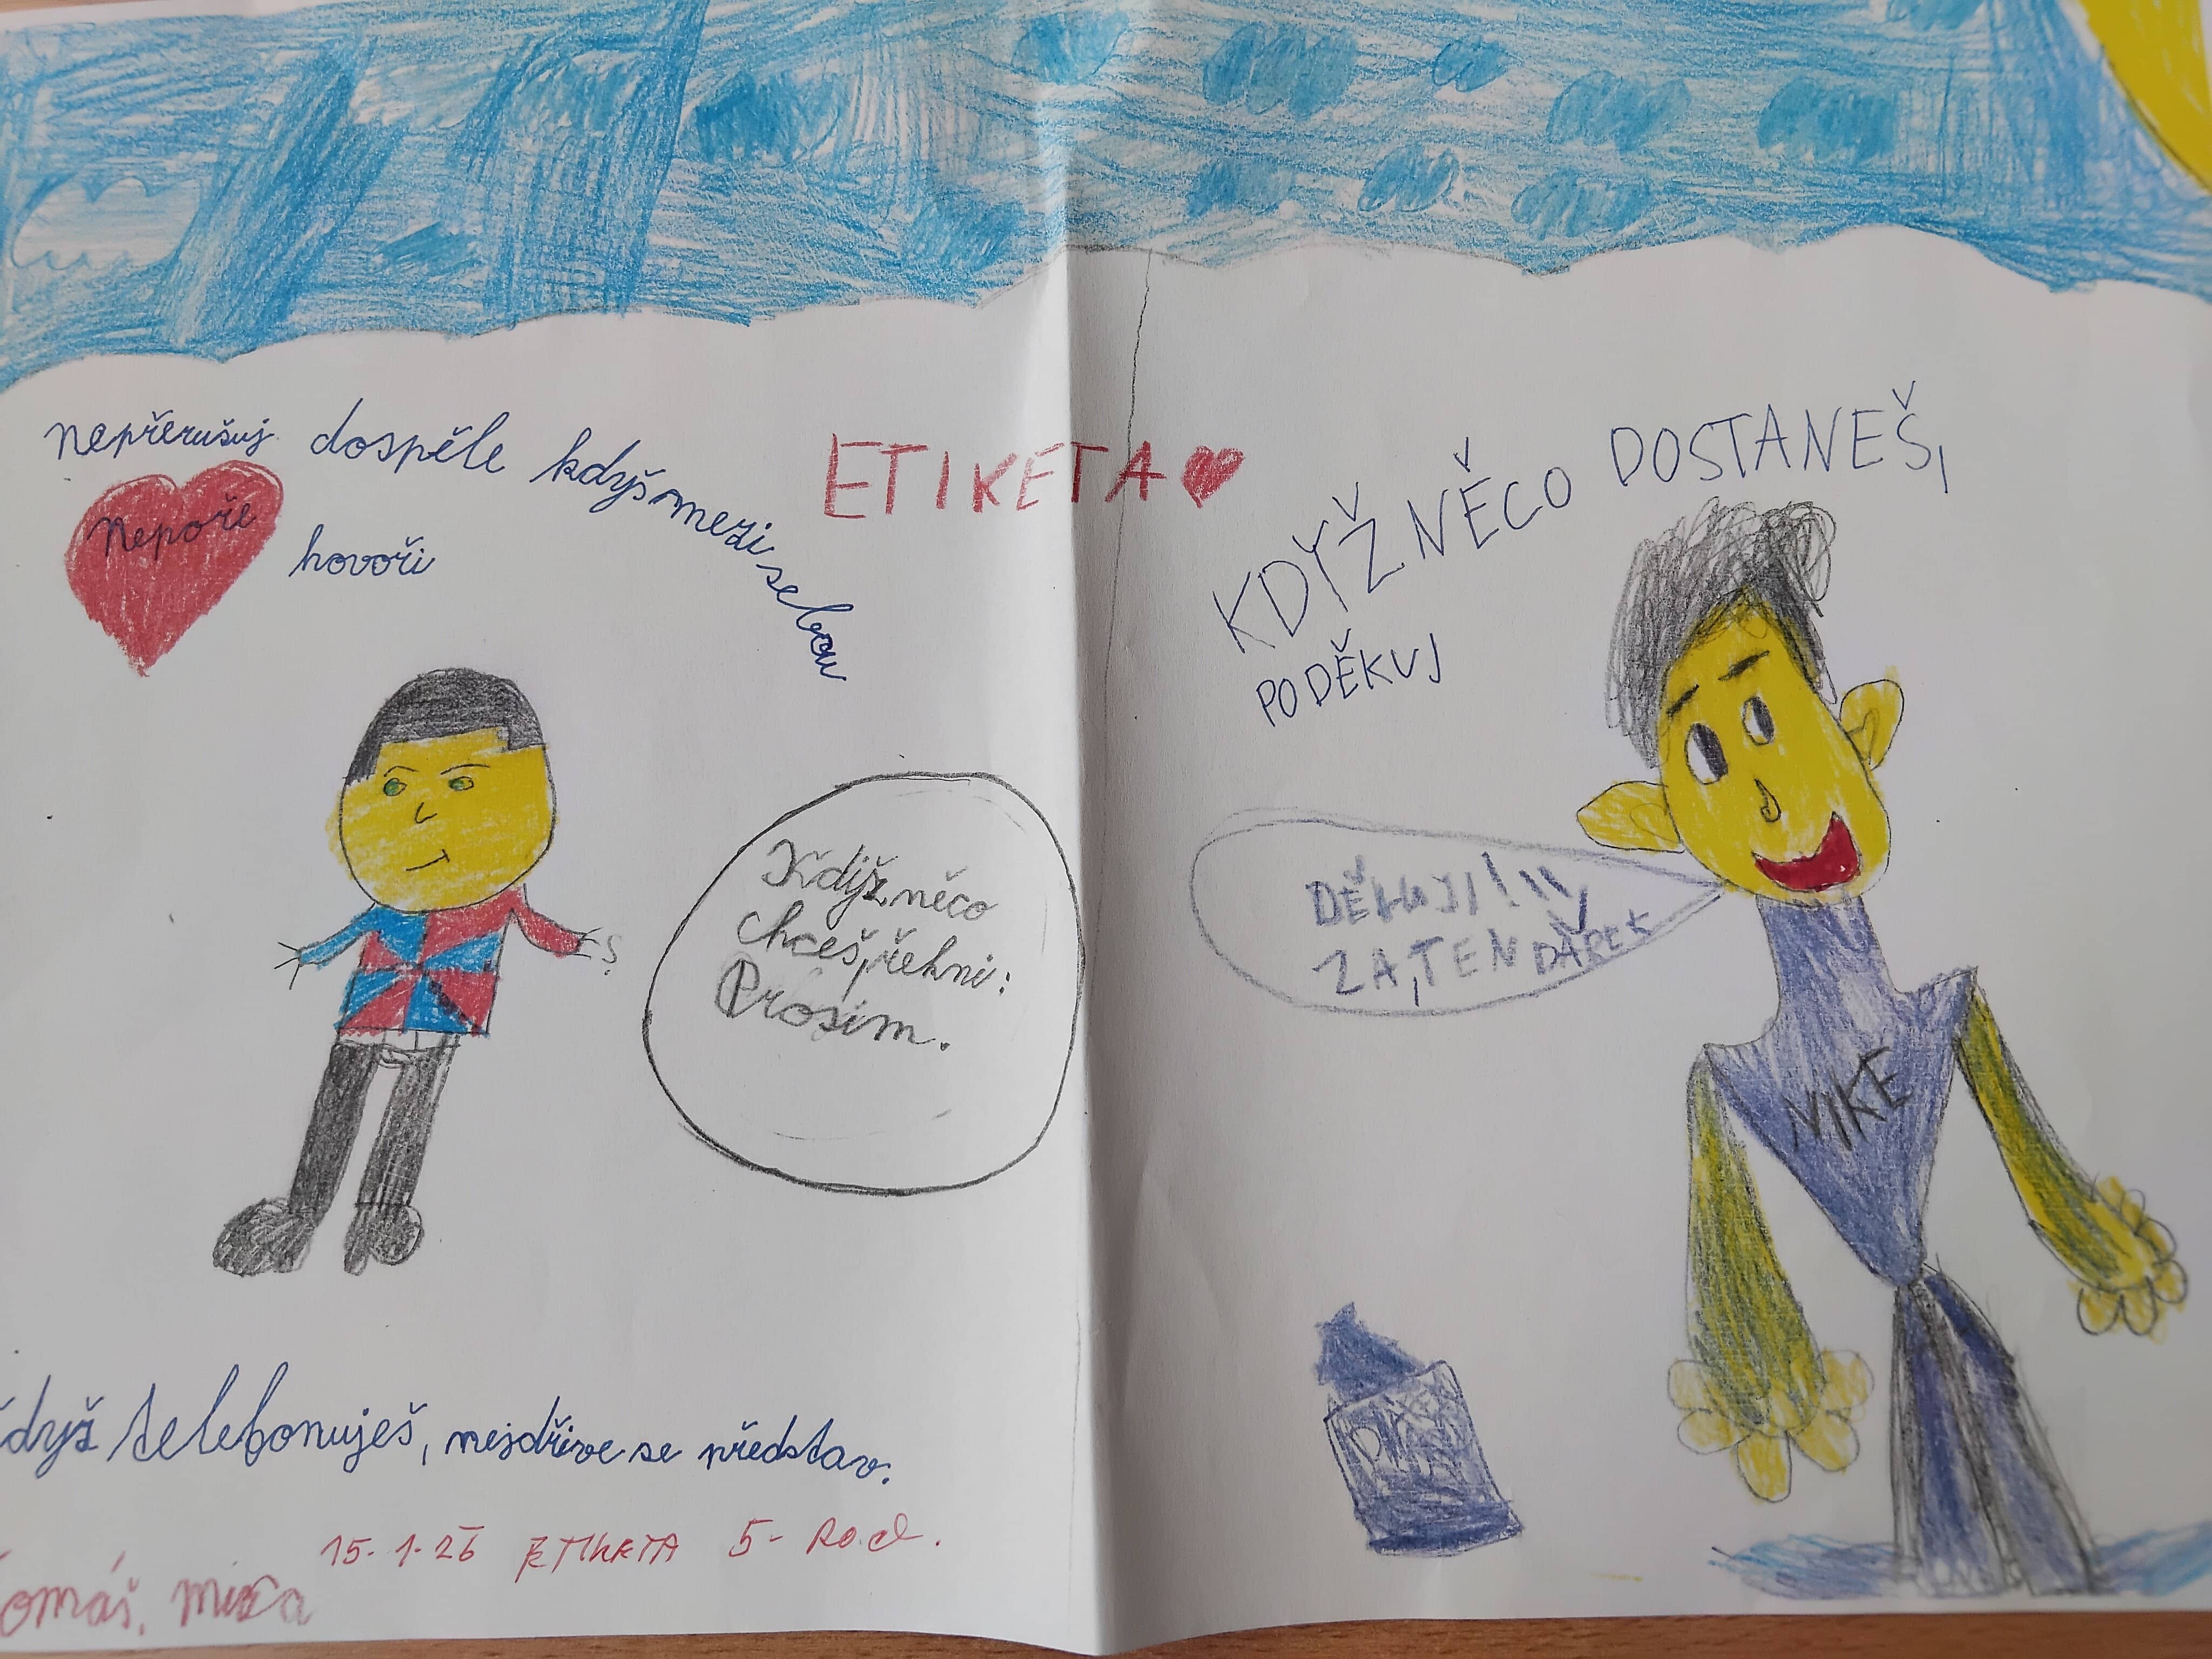 nepřerušuj dospěle když mezi sebou
hovoři
Nepoře
ETIKETA
KDYŽ NĚCO DOSTANEŠ,
PODĚKUJ
Když něco
chceš, řekni:
Prosim.
DĚKUJI!
ZA, TEN DÁREK
NIKE
dyž telefonuješ, nejdřive se představ.
15-1-26 ETIKETA 5- Rod.
omáš.